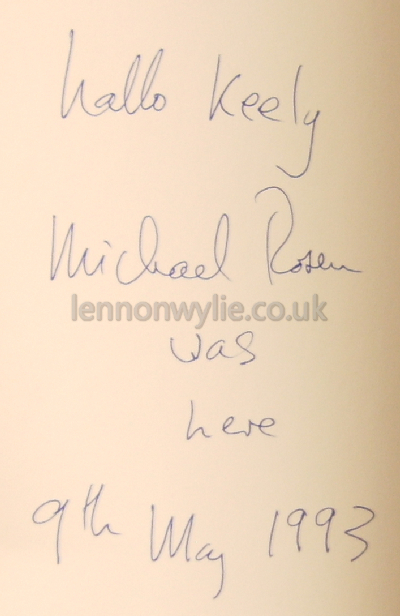 hallo Keely
Michael Rosen
lennonwylie.co.uk
was
here
9th May 1993